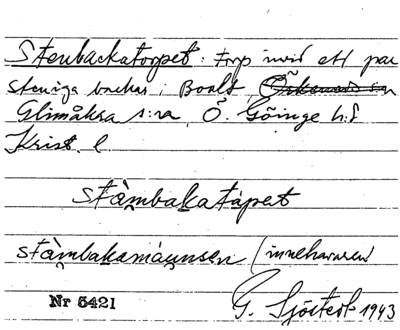 Stenbackatorpet: torp invid ett par
steniga backar i Boalt, Örkeneds sn
Glimåkra s:n, Ö. Göinge h:d
Krist. l
stàmbakatápet
stàmbakamáunsen (innehavaren)
Nr 5421 G. Sjöstedt 1943